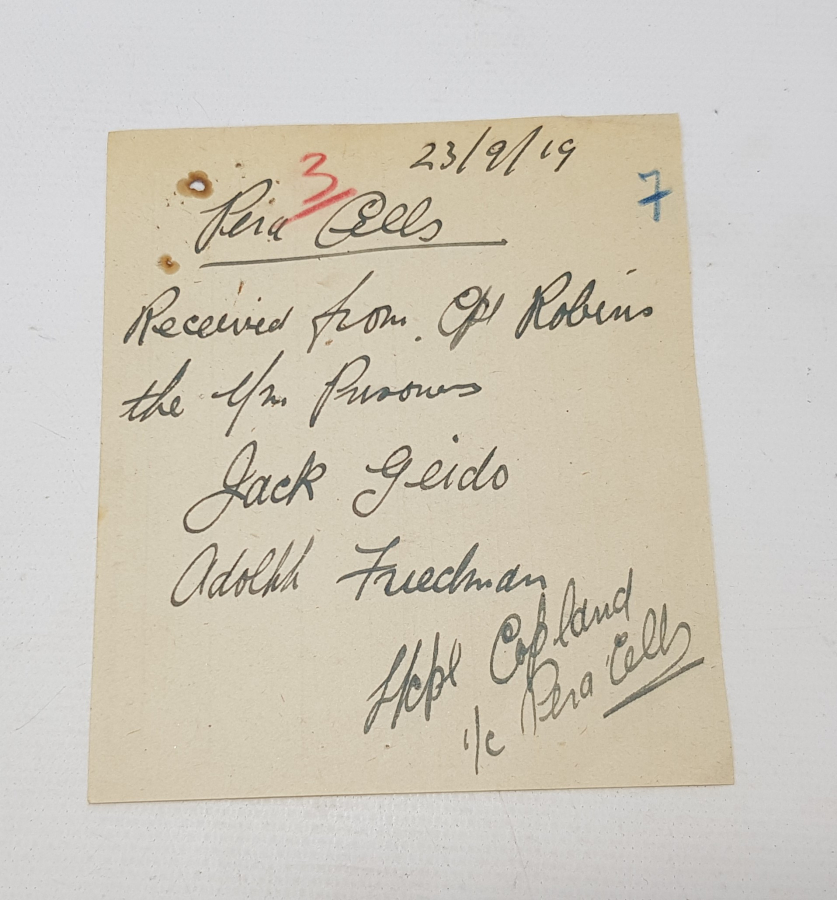 23/9/19
3
7
Pera Cells
Received from Cpl Robins
the u/m Prisoners
Jack Geido
Adolph Friedman
L/Cpl Copland
i/c Pera Cells